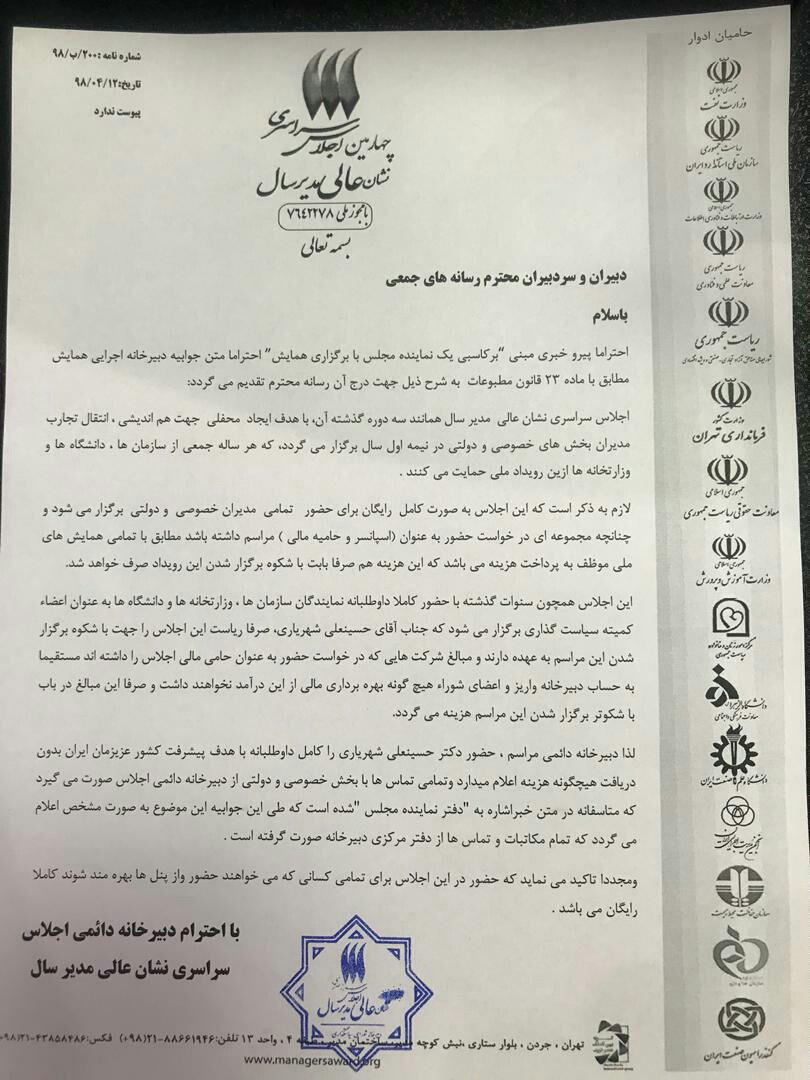 شماره نامه :۲۰۰/ب/۹۸
تاریخ:۹۸/۰۴/۱۲
پیوست ندارد
چهارمین اجلاس سراسری
نشان عالی مدیر سال
بامجوز ملی ۷۶۴۲۲۷۸
بسمه تعالی
دبیران و سردبیران محترم رسانه های جمعی
باسلام
احتراما پیرو خبری مبنی "برکاسبی یک نماینده مجلس با برگزاری همایش" احتراما متن جوابیه دبیرخانه اجرایی همایش
مطابق با ماده ۲۳ قانون مطبوعات به شرح ذیل جهت درج آن رسانه محترم تقدیم می گردد:
اجلاس سراسری نشان عالی مدیر سال همانند سه دوره گذشته آن، با هدف ایجاد محفلی جهت هم اندیشی ، انتقال تجارب
مدیران بخش های خصوصی و دولتی در نیمه اول سال برگزار می گردد، که هر ساله جمعی از سازمان ها ، دانشگاه ها و
وزارتخانه ها ازین رویداد ملی حمایت می کنند .
لازم به ذکر است که این اجلاس به صورت کامل رایگان برای حضور تمامی مدیران خصوصی و دولتی برگزار می شود و
چنانچه مجموعه ای در خواست حضور به عنوان (اسپانسر و حامیه مالی ) مراسم داشته باشد مطابق با تمامی همایش های
ملی موظف به پرداخت هزینه می باشد که این هزینه هم صرفا بابت با شکوه برگزار شدن این رویداد صرف خواهد شد.
این اجلاس همچون سنوات گذشته با حضور کاملا داوطلبانه نمایندگان سازمان ها ، وزارتخانه ها و دانشگاه ها به عنوان اعضاء
کمیته سیاست گذاری برگزار می شود که جناب آقای حسینعلی شهریاری، صرفا ریاست این اجلاس را جهت با شکوه برگزار
شدن این مراسم به عهده دارند و مبالغ شرکت هایی که در خواست حضور به عنوان حامی مالی اجلاس را داشته اند مستقیما
به حساب دبیرخانه واریز و اعضای شوراء هیچ گونه بهره برداری مالی از این درآمد نخواهند داشت و صرفا این مبالغ در باب
با شکوتر برگزار شدن این مراسم هزینه می گردد.
لذا دبیرخانه دائمی مراسم ، حضور دکتر حسینعلی شهریاری را کامل داوطلبانه با هدف پیشرفت کشور عزیزمان ایران بدون
دریافت هیچگونه هزینه اعلام میدارد وتمامی تماس ها با بخش خصوصی و دولتی از دبیرخانه دائمی اجلاس صورت می گیرد
که متاسفانه در متن خبراشاره به "دفتر نماینده مجلس "شده است که طی این جوابیه این موضوع به صورت مشخص اعلام
می گردد که تمام مکاتبات و تماس ها از دفتر مرکزی دبیرخانه صورت گرفته است .
ومجددا تاکید می نماید که حضور در این اجلاس برای تمامی کسانی که می خواهند حضور واز پنل ها بهره مند شوند کاملا
رایگان می باشد .
با احترام دبیرخانه دائمی اجلاس
سراسری نشان عالی مدیر سال
نشان عالی مدیر سال
تهران ، جردن ، بلوار ستاری ،نبش کوچه مهر، ساختمان مدیر، طبقه ۴ ، واحد ۱۳ تلفن:۸۸۶۶۱۹۴۶-۲۱(۰۹۸+) فکس:۴۳۸۵۸۴۸۶-۲۱(۰۹۸+
www.managersaward.org
حامیان ادوار
جمهوری اسلامی
وزارت نفت
ریاست جمهوری
سازمان ملی استاندارد ایران
جمهوری اسلامی
وزارت ارتباطات و فناوری اطلاعات
ریاست جمهوری
معاونت علمی و فناوری
ریاست جمهوری
شورایعالی مناطق آزاد تجاری، صنعتی و ویژه اقتصادی
وزارت کشور
فرمانداری تهران
جمهوری اسلامی
معاونت حقوقی ریاست جمهوری
جمهوری اسلامی
وزارت آموزش و پرورش
مرکز امور زنان و خانواده
ریاست جمهوری
دانشگاه الزهرا
معاونت فرهنگی و اجتماعی
دانشگاه علم و صنعت ایران
سازمان حفاظت محیط زیست
سازمان غذا و دارو
کنفدراسیون صنعت ایران